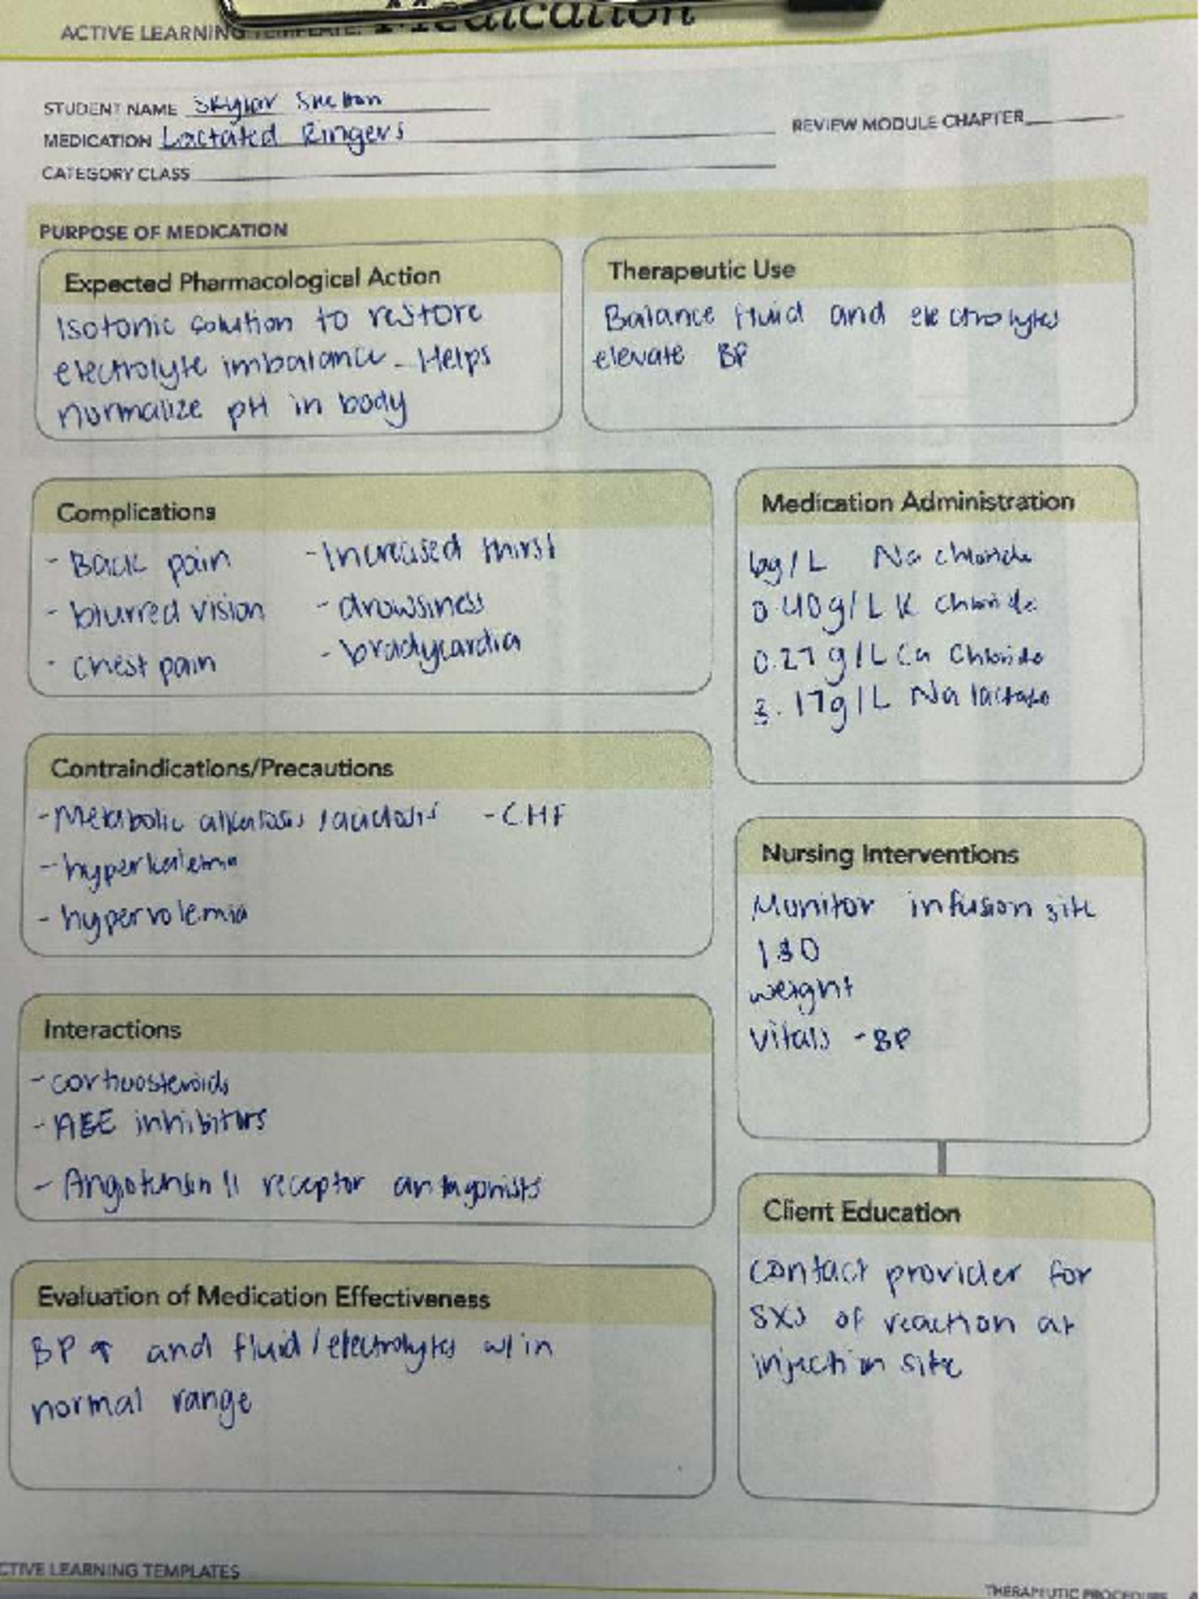 ACTIVE LEARNING TEMPLATE: Medication
STUDENT NAME Skylar Shelton
MEDICATION Lactated Ringers
REVIEW MODULE CHAPTER
CATEGORY CLASS
PURPOSE OF MEDICATION
Expected Pharmacological Action
Isotonic solution to restore
electrolyte imbalance - Helps
normalize pH in body
Therapeutic Use
Balance fluid and electrolytes
elevate BP
Complications
- Back pain - Increased thirst
- blurred vision - drowsiness
- chest pain - bradycardia
Medication Administration
6g/L Na chloride
0.40g/L K chloride
0.27g/L Ca Chloride
3.17g/L Na lactate
Contraindications/Precautions
- Metabolic alkalosis / acidosis - CHF
- hyperkalemia
- hypervolemia
Nursing Interventions
Monitor infusion site
I&O
weight
Vitals - BP
Interactions
- corticosteroids
- ACE inhibitors
- Angiotensin II receptor antagonists
Client Education
contact provider for
SXS of reaction at
injection site
Evaluation of Medication Effectiveness
BP ↑ and fluid/electrolytes w/in
normal range
CTIVE LEARNING TEMPLATES
THERAPEUTIC PROCEDURE